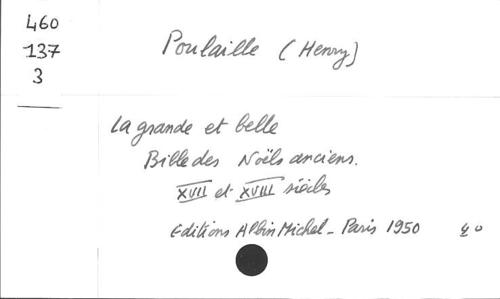 460
137
3
Poulaille (Henry)
La grande et belle
Bille des Noëls anciens.
XVII et XVIII siècles
Editions Albin Michel - Paris 1950